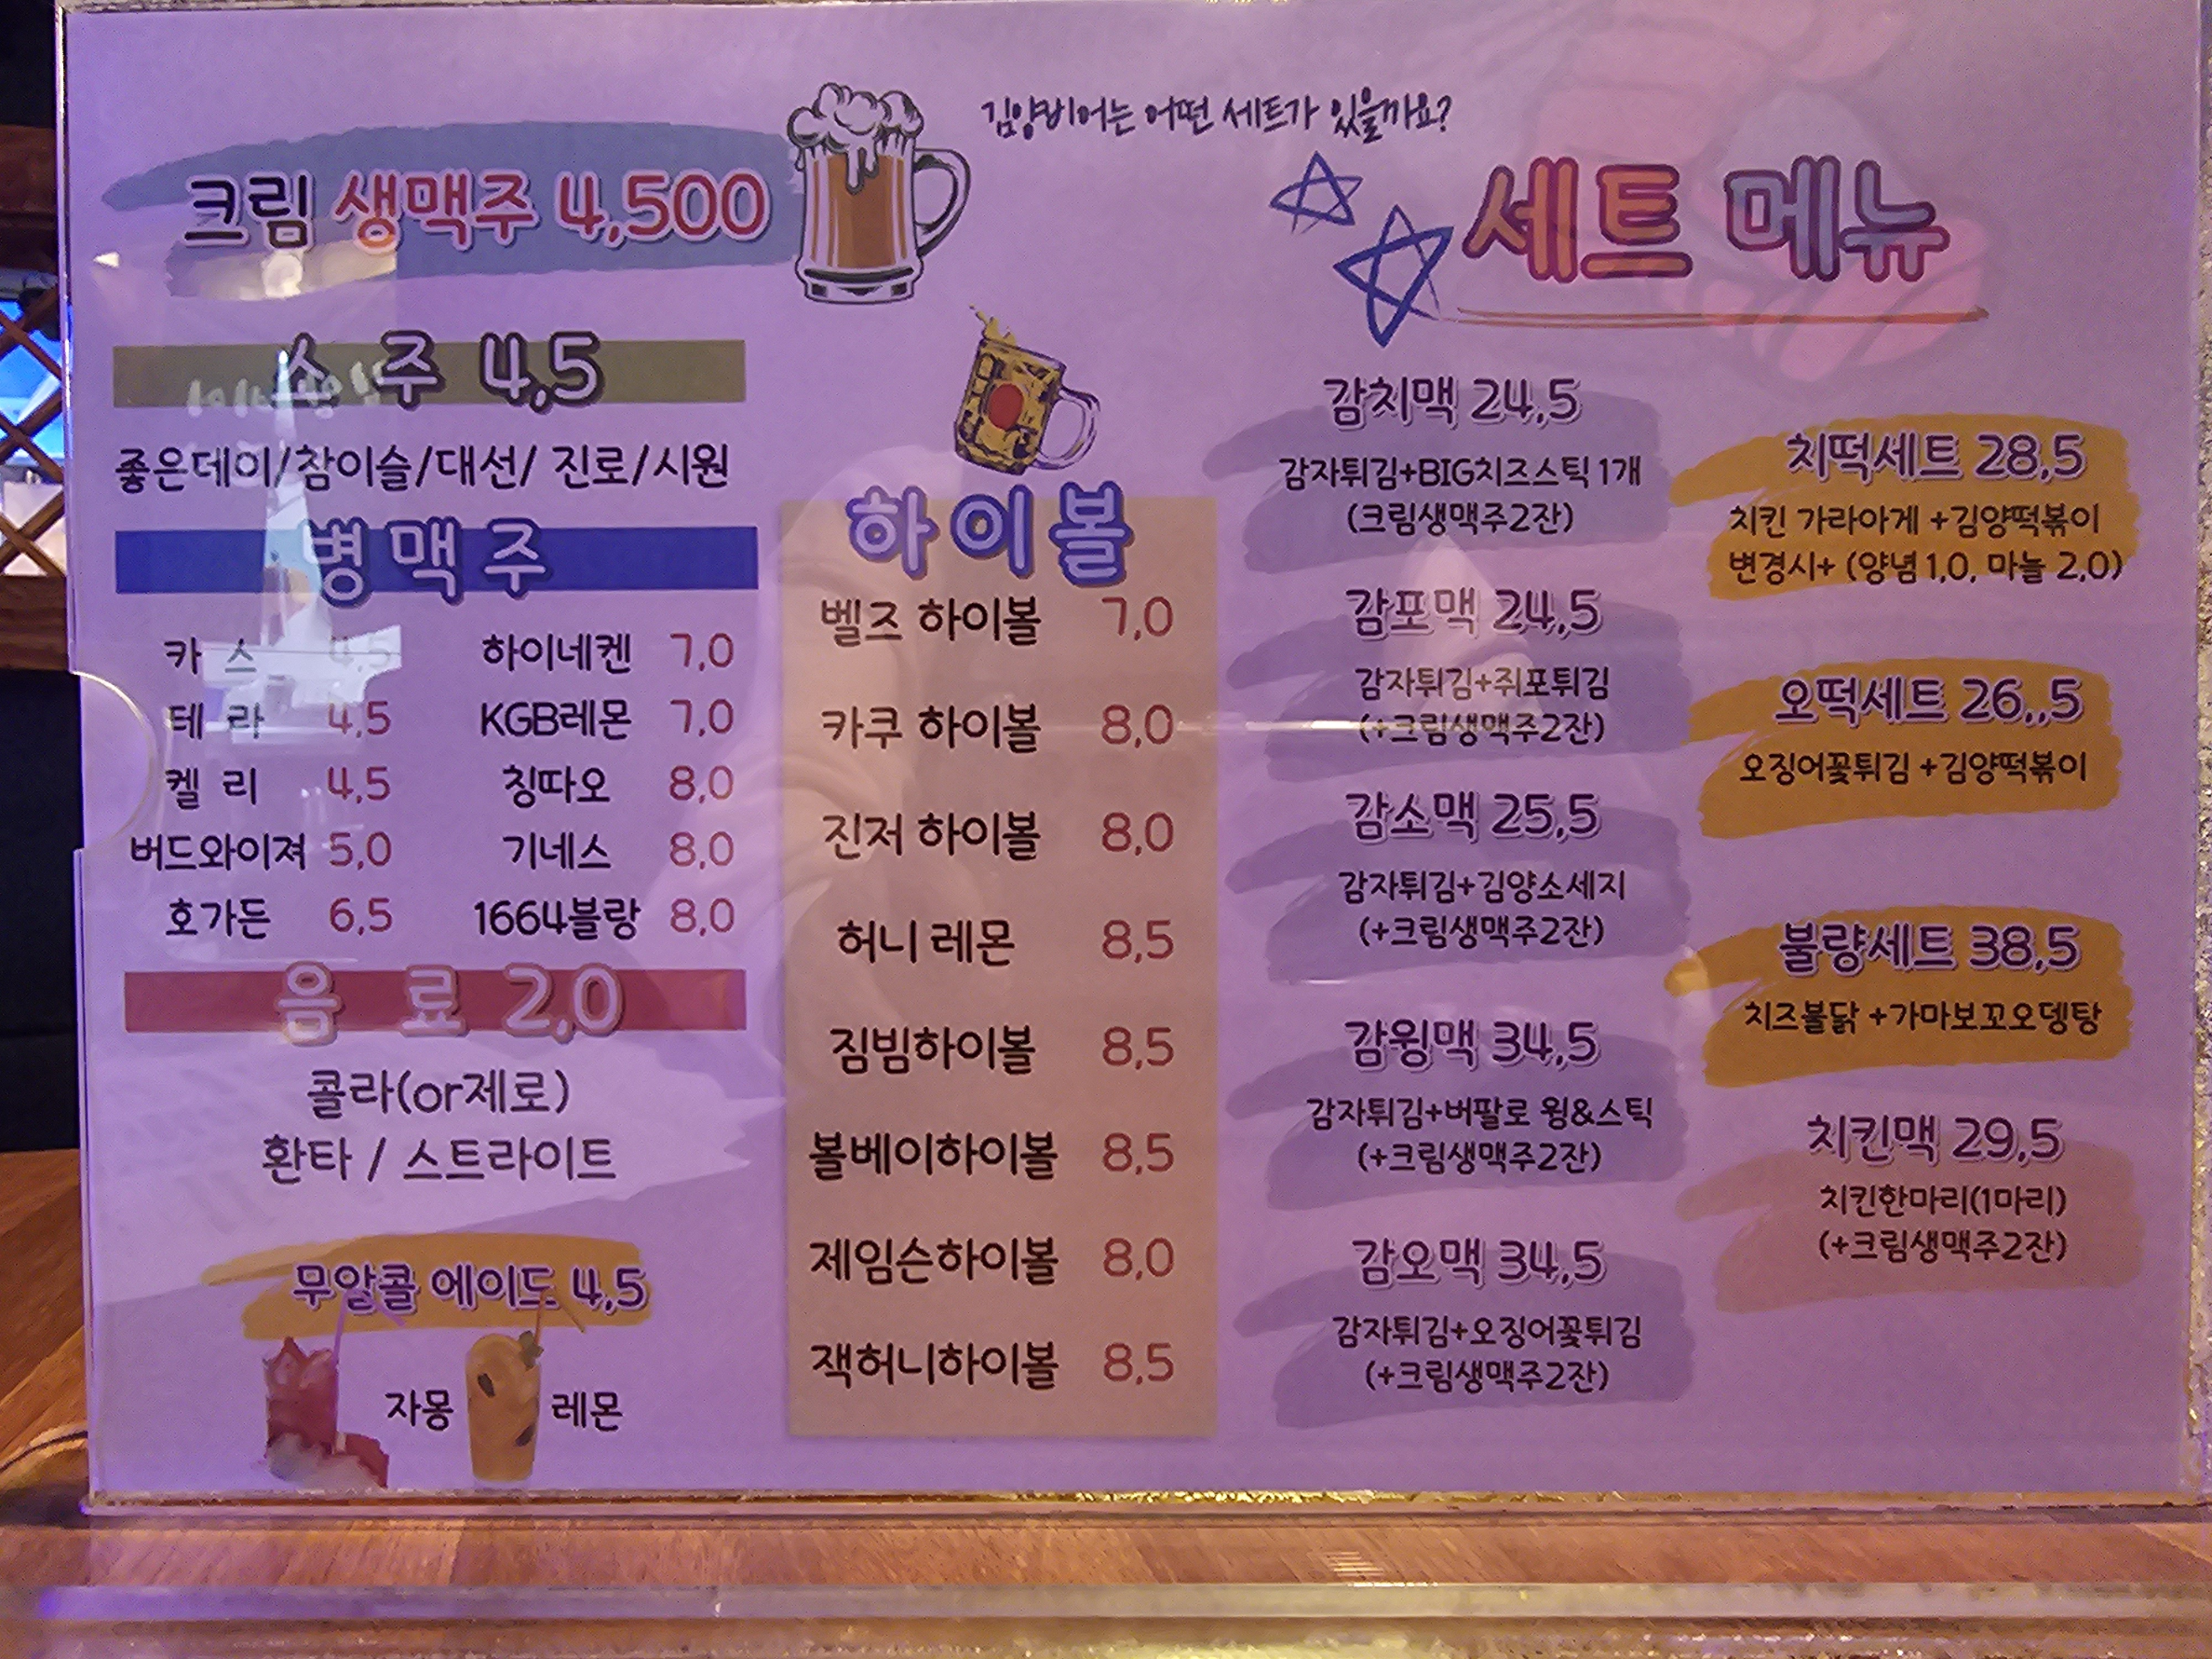 크림 생맥주 4,500
소 주 4,5
좋은데이/참이슬/대선/ 진로/시원
병 맥 주
카 스 4,5 하이네켄 7,0
테 라 4,5 KGB레몬 7,0
켈 리 4,5 칭따오 8,0
버드와이져 5,0 기네스 8,0
호가든 6,5 1664블랑 8,0
음 료 2,0
콜라(or제로)
환타 / 스트라이트
무알콜 에이드 4,5
자몽 레몬
하이볼
벨즈 하이볼 7,0
카쿠 하이볼 8,0
진저 하이볼 8,0
허니 레몬 8,5
짐빔하이볼 8,5
볼베이하이볼 8,5
제임슨하이볼 8,0
잭허니하이볼 8,5
김양비어는 어떤 세트가 있을까요?
세트 메뉴
감치맥 24,5
감자튀김+BIG치즈스틱 1개
(크림생맥주2잔)
감포맥 24,5
감자튀김+쥐포튀김
(+크림생맥주2잔)
감소맥 25,5
감자튀김+김양소세지
(+크림생맥주2잔)
감윙맥 34,5
감자튀김+버팔로 윙&스틱
(+크림생맥주2잔)
감오맥 34,5
감자튀김+오징어꽃튀김
(+크림생맥주2잔)
치떡세트 28,5
치킨 가라아게 +김양떡볶이
변경시+ (양념 1,0, 마늘 2,0)
오떡세트 26,,5
오징어꽃튀김 +김양떡볶이
불량세트 38,5
치즈불닭 +가마보꼬오뎅탕
치킨맥 29,5
치킨한마리(1마리)
(+크림생맥주2잔)